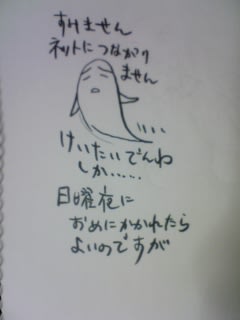 すみません
ネットにつながり
ません
けいたいでんわ
しか……
日曜夜に
おめにかかれたら
よいのですが